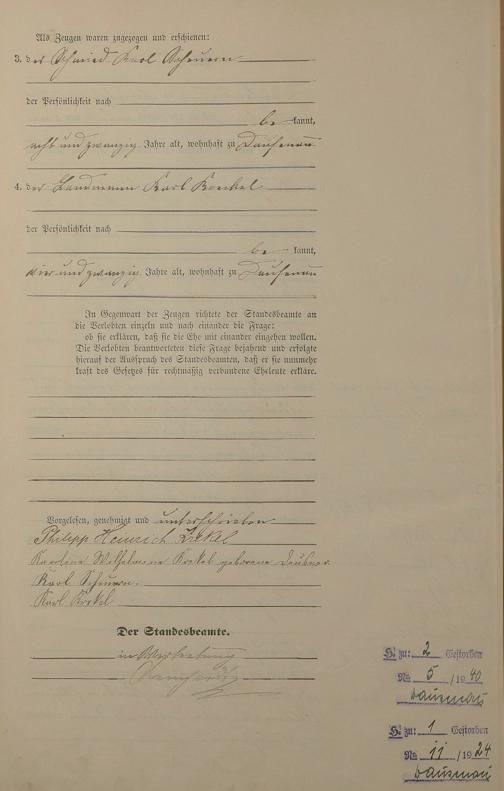 Als Zeugen waren zugezogen und erschienen:
3. der Schmied Karl Scheuern
der Persönlichkeit nach
be kannt,
acht und zwanzig Jahre alt, wohnhaft zu Dausenau
4. der Landmann Karl Krekel
der Persönlichkeit nach
be kannt,
vier und zwanzig Jahre alt, wohnhaft zu Dausenau
In Gegenwart der Zeugen richtete der Standesbeamte an
die Verlobten einzeln und nach einander die Frage:
ob sie erklären, daß sie die Ehe mit einander eingehen wollen.
Die Verlobten beantworteten diese Frage bejahend und erfolgte
hierauf der Ausspruch des Standesbeamten, daß er sie nunmehr
kraft des Gesetzes für rechtmäßig verbundene Eheleute erkläre.
Vorgelesen, genehmigt und unterschrieben
Philipp Heinrich Krekel
Karoline Wilhelmine Krekel geborene
Karl Scheuern.
Karl Krekel
Der Standesbeamte.
in Vertretung
H. zu: 2 Gestorben
No 5 /1940
Dausenau
H. zu: 1 Gestorben
No 11 /1924
Dausenau